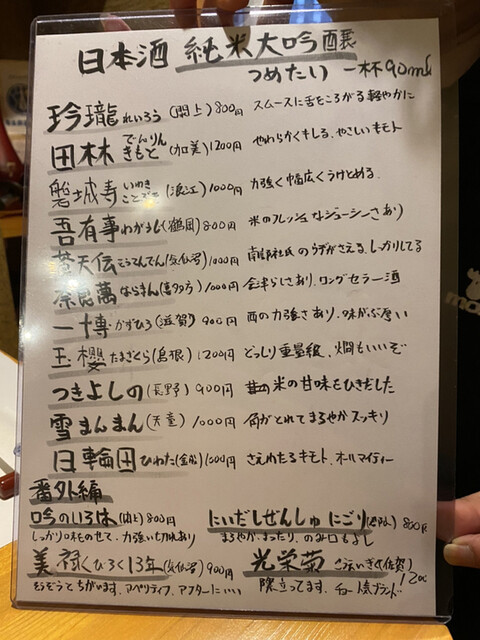 日本酒 純米大吟醸
つめたい 一杯90ml
玲瓏 れいろう (閖上) 800円 スムースに舌をころがる軽やかに
田林 でんりん きもと (加美) 1200円 やわらかくキレる、やさしいキモト
磐城寿 いわき ことぶき (浪江) 1000円 力強く幅広くうけとめる。
吾有事 わがうじ (鶴岡) 800円 米のフレッシュなジューシーさあり
蒼天伝 そうてんでん (気仙沼) 1000円 南部杜氏のうでがさえる、しっかりしてる
奈良萬 ならまん (喜多方) 1000円 会津らしさあり、ロングセラー酒
一博 かずひろ (滋賀) 900円 西の力強さあり、味がぶ厚い
玉櫻 たまざくら (島根) 1200円 どっしり重量級、燗もいいぞ
つきよしの (長野) 900円 米の甘味をひきだした
雪まんまん (天童) 1000円 角がとれてまろやかスッキリ
日輪田 ひわた 1200円 さえわたるキモト、オールマイティー
番外編
吟のいろは 800円 しっかり口にのせて、力強い切れあり
にいだしぜんしゅ にごり 800円 まろやか、まったり、のみ口もよし
美禄 くひろく 13年 (気仙沼) 900円 そうぞうとちがいます、アペリティフ、アフターにいい
光栄菊 こうえいぎく (佐賀) 1200 際立ってます、チョー人気ブランド!!